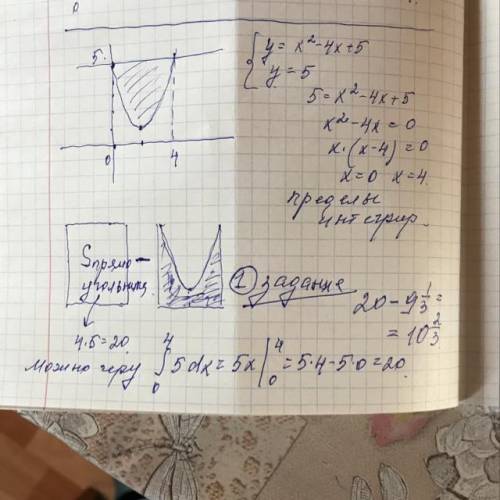 5
0 4
y = x² - 4x + 5
y = 5
5 = x² - 4x + 5
x² - 4x = 0
x · (x - 4) = 0
x = 0 x = 4
пределы
интегрир.
Sпрямо-
угольника
4·5=20
① задание
20 - 9 1/3 =
= 10 2/3
Можно через ∫₀⁴ 5 dx = 5x |₀⁴ = 5·4 - 5·0 = 20